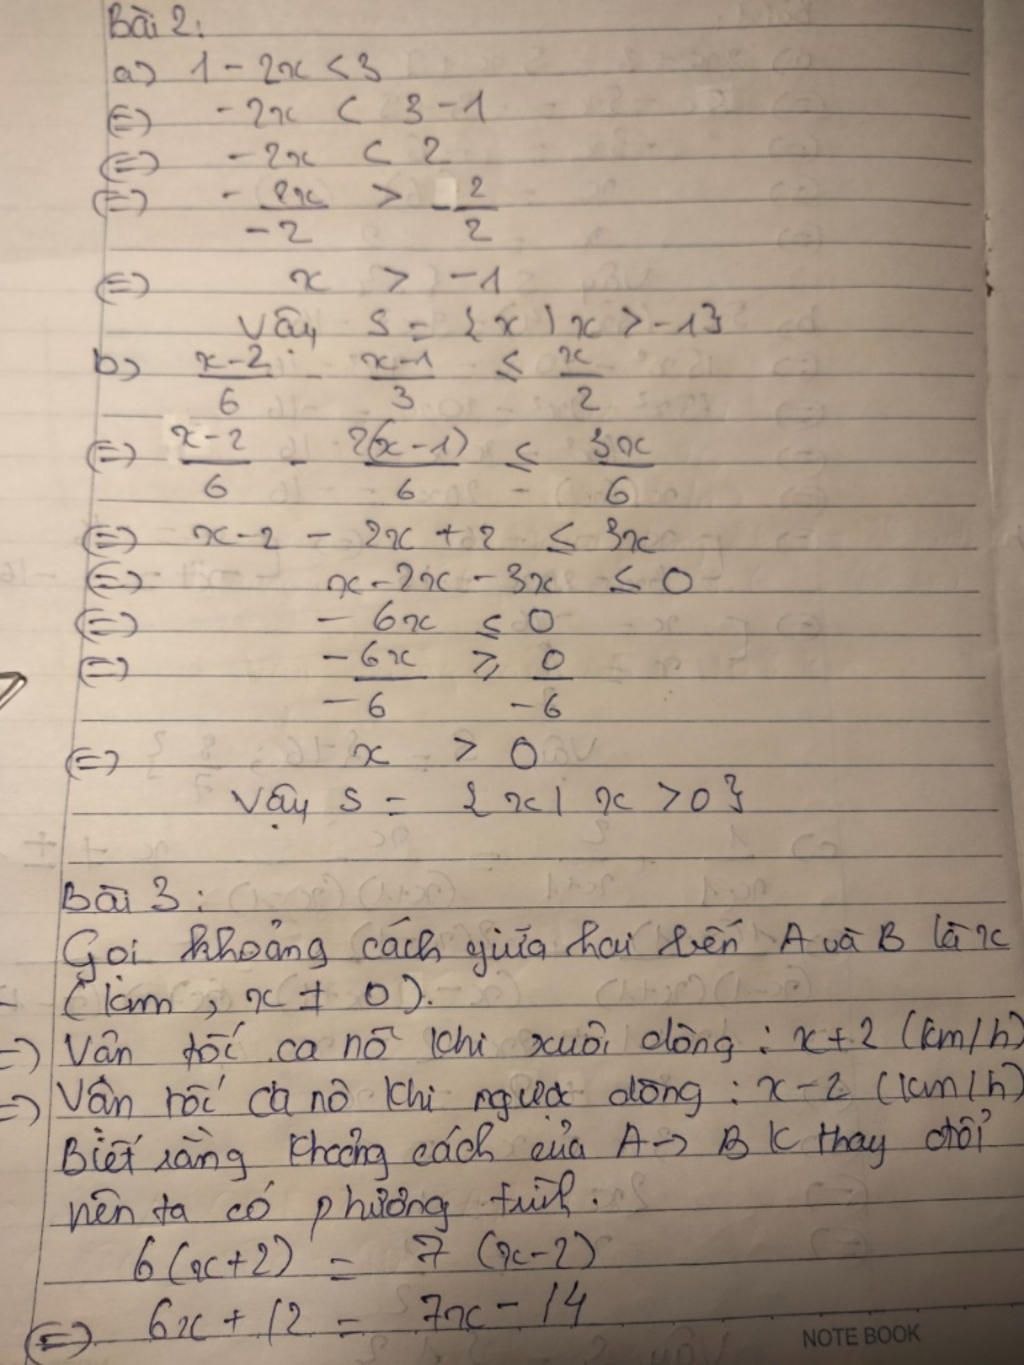 Bài 2:
a) 1 - 2x < 3
(=) -2x < 3 - 1
(=) -2x < 2
(=) -2x/-2 > -2/2
(=) x > -1
Vậy S = {x | x > -1}
b) x-2/6 - x-1/3 ≤ x/2
(=) x-2/6 - 2(x-1)/6 ≤ 3x/6
(=) x-2 - 2x + 2 ≤ 3x
(=) x - 2x - 3x ≤ 0
(=) -6x ≤ 0
(=) -6x/-6 ≥ 0/-6
(=) x > 0
Vậy S = {x | x > 0}
Bài 3:
Gọi khoảng cách giữa hai bến A và B là x
(km, x ≠ 0).
=) Vân tốc ca nô khi xuôi dòng: x+2 (km/h)
=) Vân tốc ca nô khi ngược dòng: x-2 (km/h)
Biết rằng khoảng cách của A → B K thay đổi
nên ta có phương trình.
6(x+2) = 7 (x-2)
(=) 6x + 12 = 7x - 14
NOTE BOOK